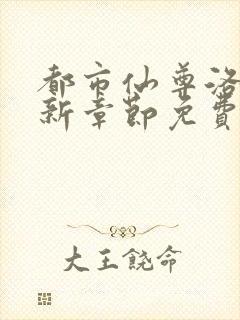 都市仙尊洛
新章節免費
大王饒命